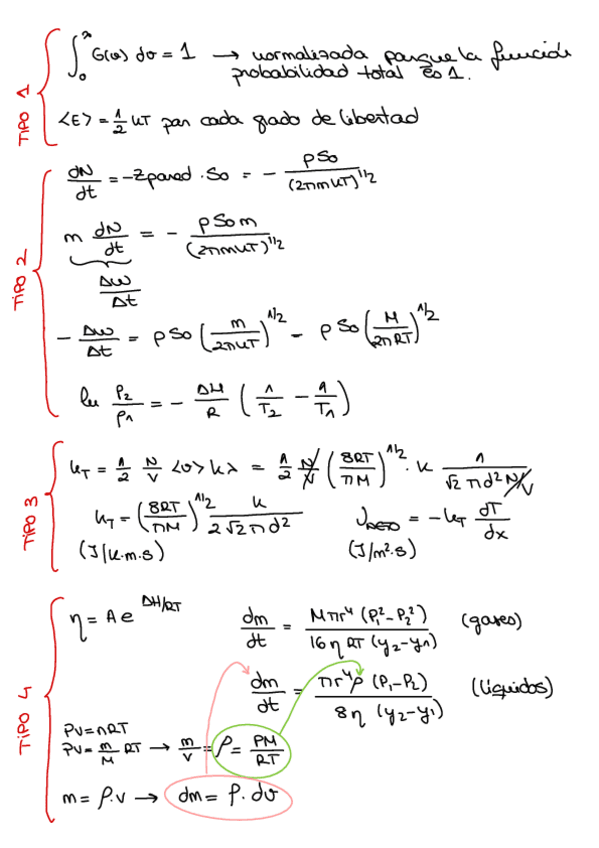 TIPO 1
∫₀^∞ G(v) dv = 1 → normalizada porque la función
probabilidad total es 1.
<E> = 1/2 kT por cada grado de libertad
TIPO 2
dN/dt = -Zpared · So = - pSo/(2πmkT)^1/2
m dN/dt = - pSom/(2πmkT)^1/2
Δw/Δt
- Δw/Δt = pSo (m/2πkT)^1/2 - pSo (M/2πRT)^1/2
ln P2/P1 = - ΔH/R (1/T2 - 1/T1)
TIPO 3
kT = 1/2 N/V <v> k λ = 1/2 N/V (8RT/πM)^1/2 · k 1/(√2 πd² N/V)
kT = (8RT/πM)^1/2 k/(2√2 πd²)
(J/K·m·s)
= -kT dT/dx
(J/m²·s)
TIPO 4
η = A e^ΔH/RT
dm/dt = Mπr⁴ (P1² - P2²)/(16 η RT (y2 - y1)) (gases)
dm/dt = πr⁴ρ (P1 - P2)/(8η (y2 - y1)) (líquidos)
PV = nRT
PV = m/M RT → m/V = ρ = PM/RT
m = ρ·v → dm = ρ·dv